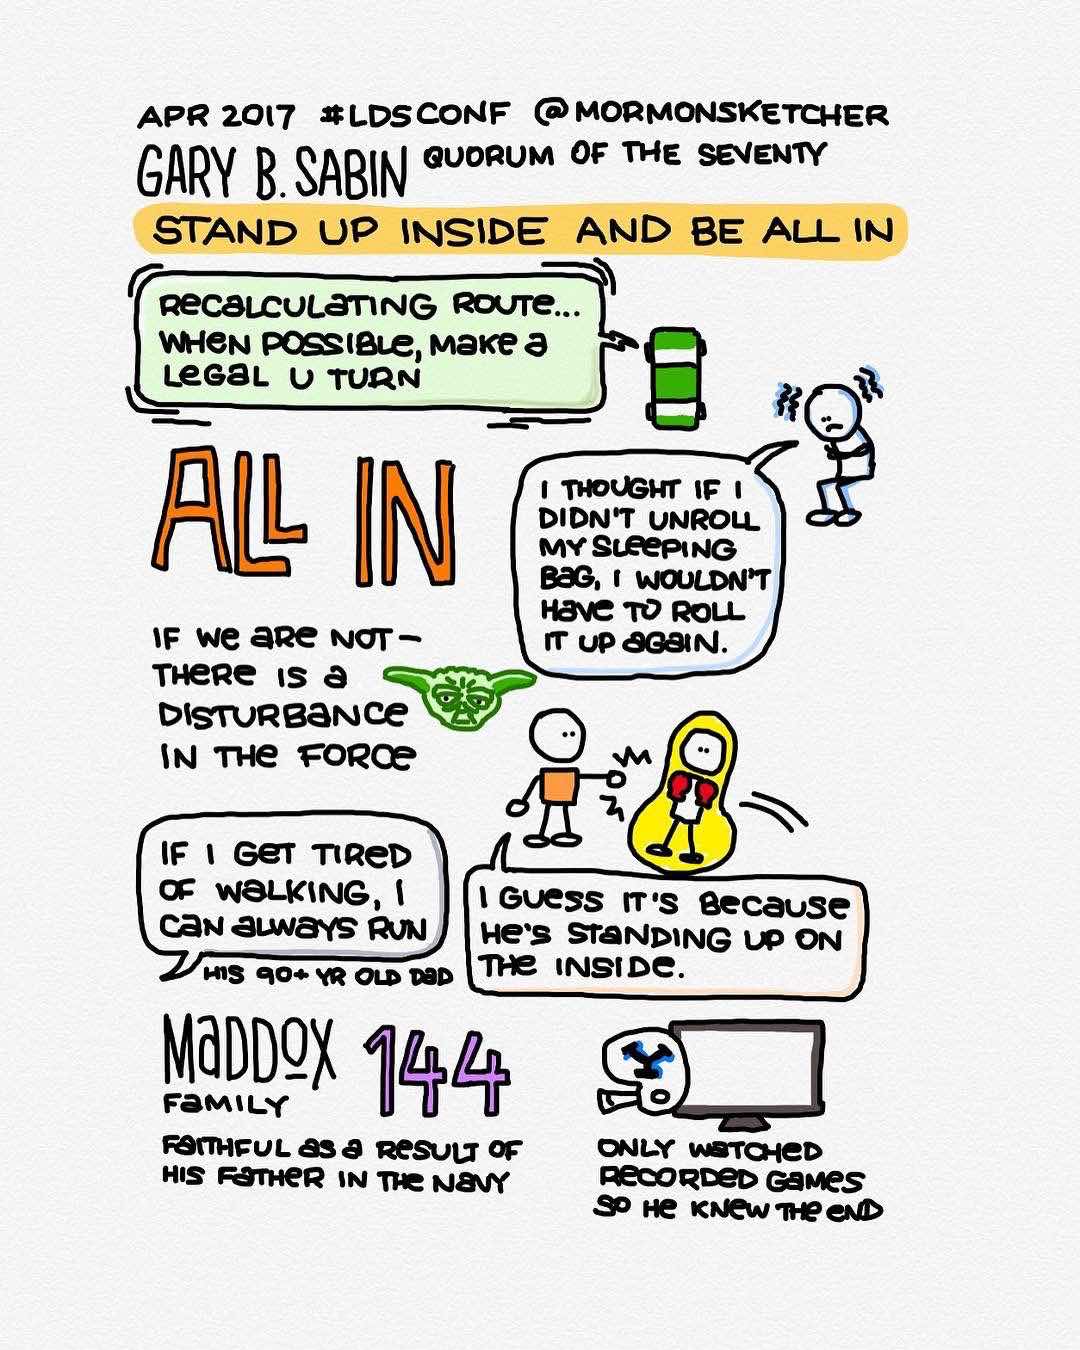 APR 2017 #LDSCONF @MORMONSKETCHER
GARY B. SABIN QUORUM OF THE SEVENTY
STAND UP INSIDE AND BE ALL IN
RECALCULATING ROUTE...
WHEN POSSIBLE, MAKE A
LEGAL U TURN
ALL IN
I THOUGHT IF I
DIDN'T UNROLL
MY SLEEPING
BAG, I WOULDN'T
HAVE TO ROLL
IT UP AGAIN.
IF WE ARE NOT-
THERE IS A
DISTURBANCE
IN THE FORCE
IF I GET TIRED
OF WALKING, I
CAN ALWAYS RUN
HIS 90+ YR OLD DAD
I GUESS IT'S BECAUSE
HE'S STANDING UP ON
THE INSIDE.
MADDOX 144
FAMILY
FAITHFUL AS A RESULT OF
HIS FATHER IN THE NAVY
Y
ONLY WATCHED
RECORDED GAMES
SO HE KNEW THE END